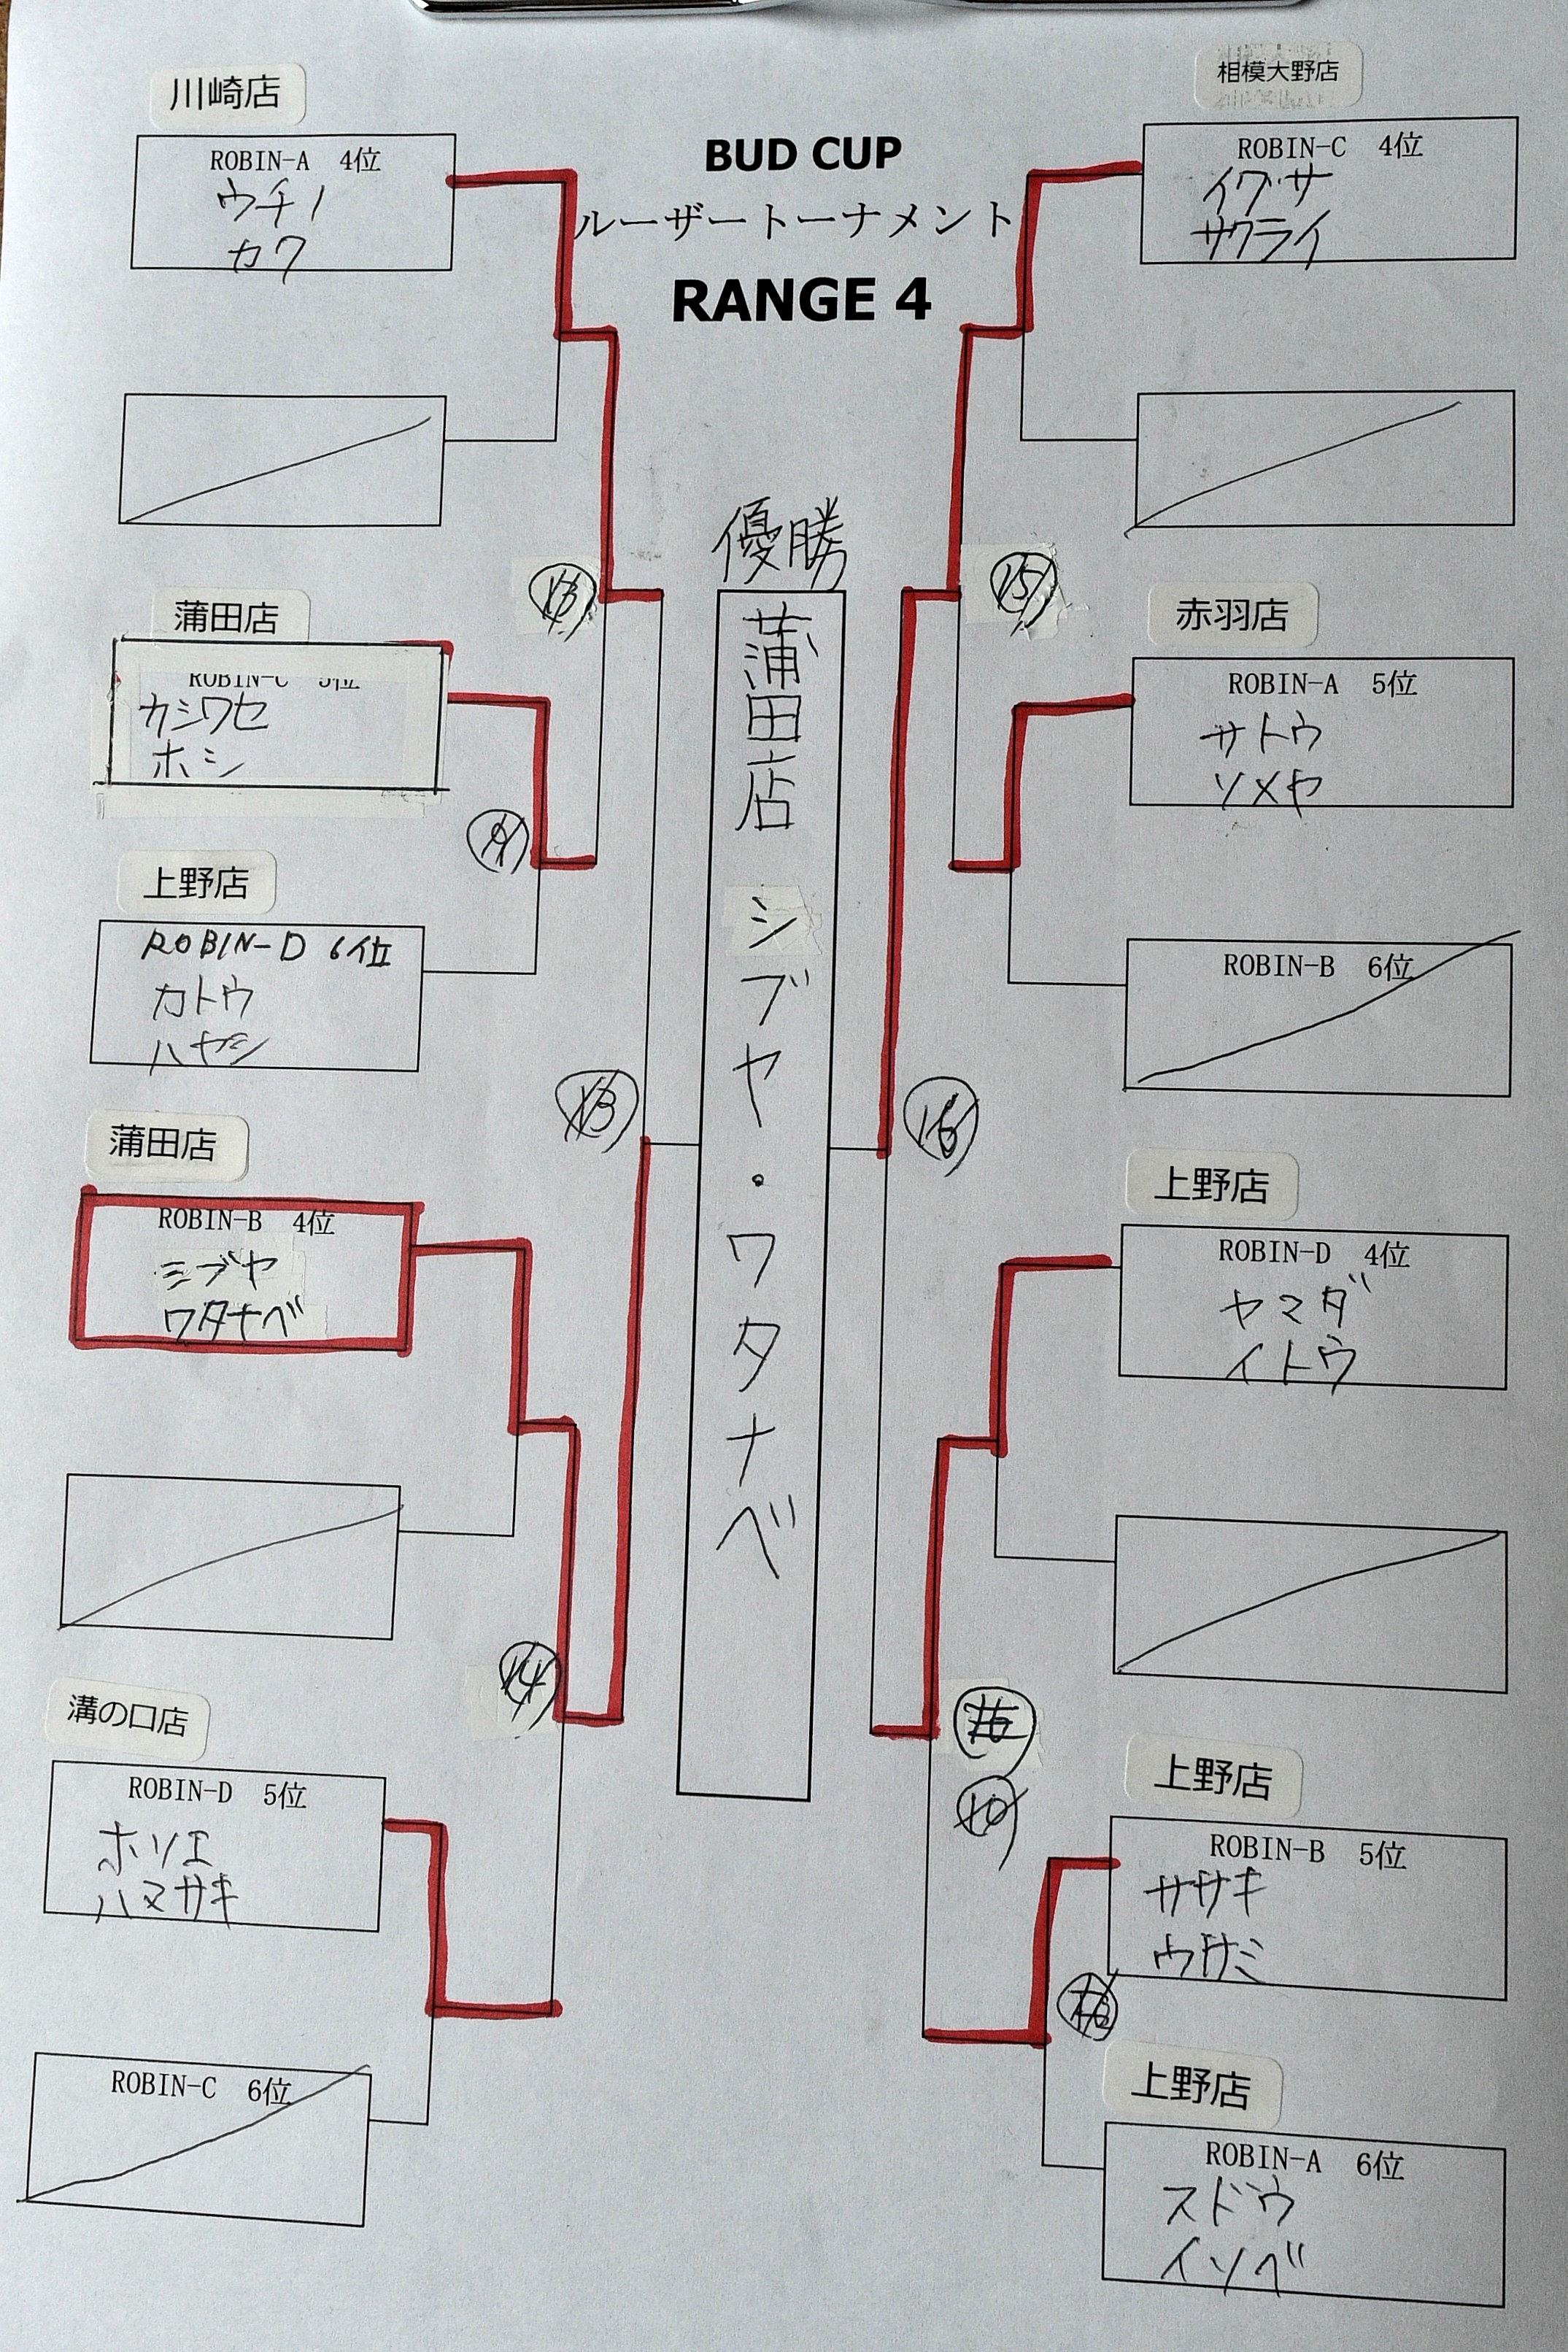 BUD CUP
ルーザートーナメント
RANGE 4
川崎店
ROBIN-A 4位
ウチノ
カワ
蒲田店
ROBIN-C 5位
カシワセ
ホシ
上野店
ROBIN-D 6位
カトウ
ハヤシ
蒲田店
ROBIN-B 4位
シブヤ
ワタナベ
溝の口店
ROBIN-D 5位
ホソエ
ハマサキ
ROBIN-C 6位
13
14
優勝
蒲田店 シブヤ・ワタナベ
15
16
10
相模大野店
ROBIN-C 4位
イグサ
サクライ
赤羽店
ROBIN-A 5位
サトウ
ソメヤ
ROBIN-B 6位
上野店
ROBIN-D 4位
ヤマダ
イトウ
上野店
ROBIN-B 5位
ササキ
ウサミ
上野店
ROBIN-A 6位
スドウ
イソベ